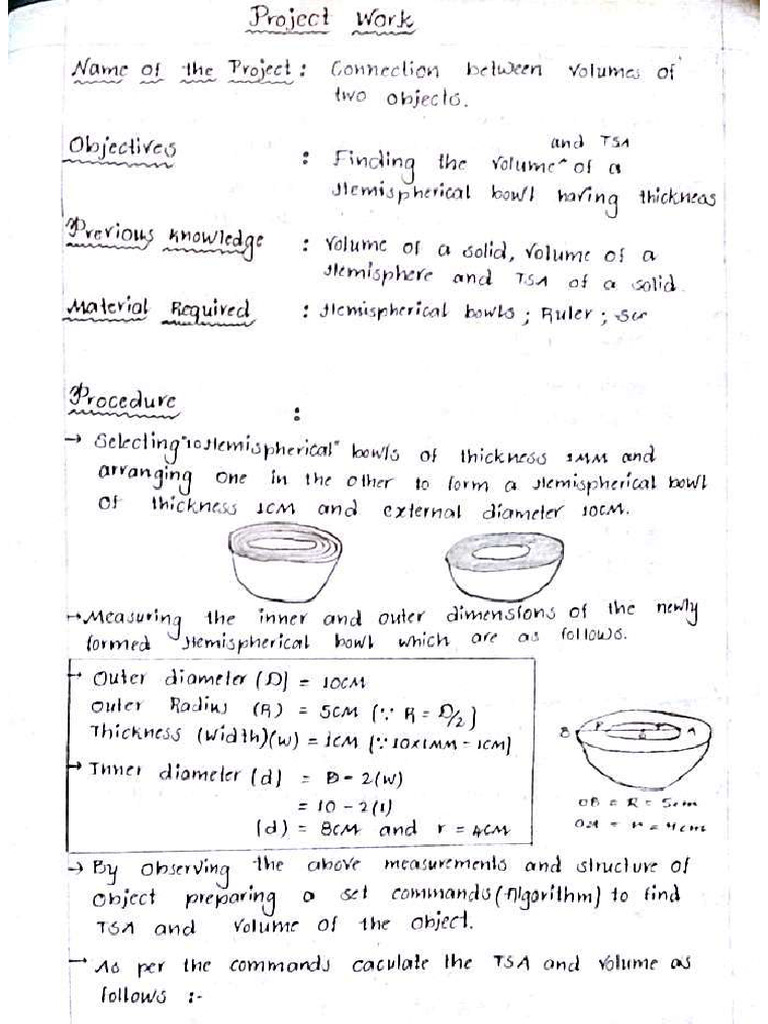 Project Work
Name of the Project : Connection between volumes of
two objects.
Objectives : Finding the volume^ and TSA of a
Hemispherical bowl having thickneas
Previous knowledge : volume of a solid, volume of a
Hemisphere and TSA of a solid.
Material Required : Hemispherical bowls ; Ruler ; Scr
Procedure :
→ Selecting "10 Hemispherical" bowls of thickness 1MM and
arranging one in the other to form a Hemispherical bowl
of thickness 1CM and external diameter 10CM.
→ Measuring the inner and outer dimensions of the newly
formed Hemispherical bowl which are as follows.
→ Outer diameter (D) = 10CM
Outer Radius (R) = 5CM (∵ R = D/2)
Thickness (width)(w) = 1CM (∵ 10x1MM = 1CM)
→ Inner diameter (d) = D - 2(w)
= 10 - 2(1)
(d) = 8CM and r = 4CM
B P A
OB = R = 5cm
OA = r = 4cm
→ By observing the above measurements and structure of
object preparing a set commands (Algorithm) to find
TSA and volume of the object.
→ As per the commands caculate the TSA and volume as
follows :-